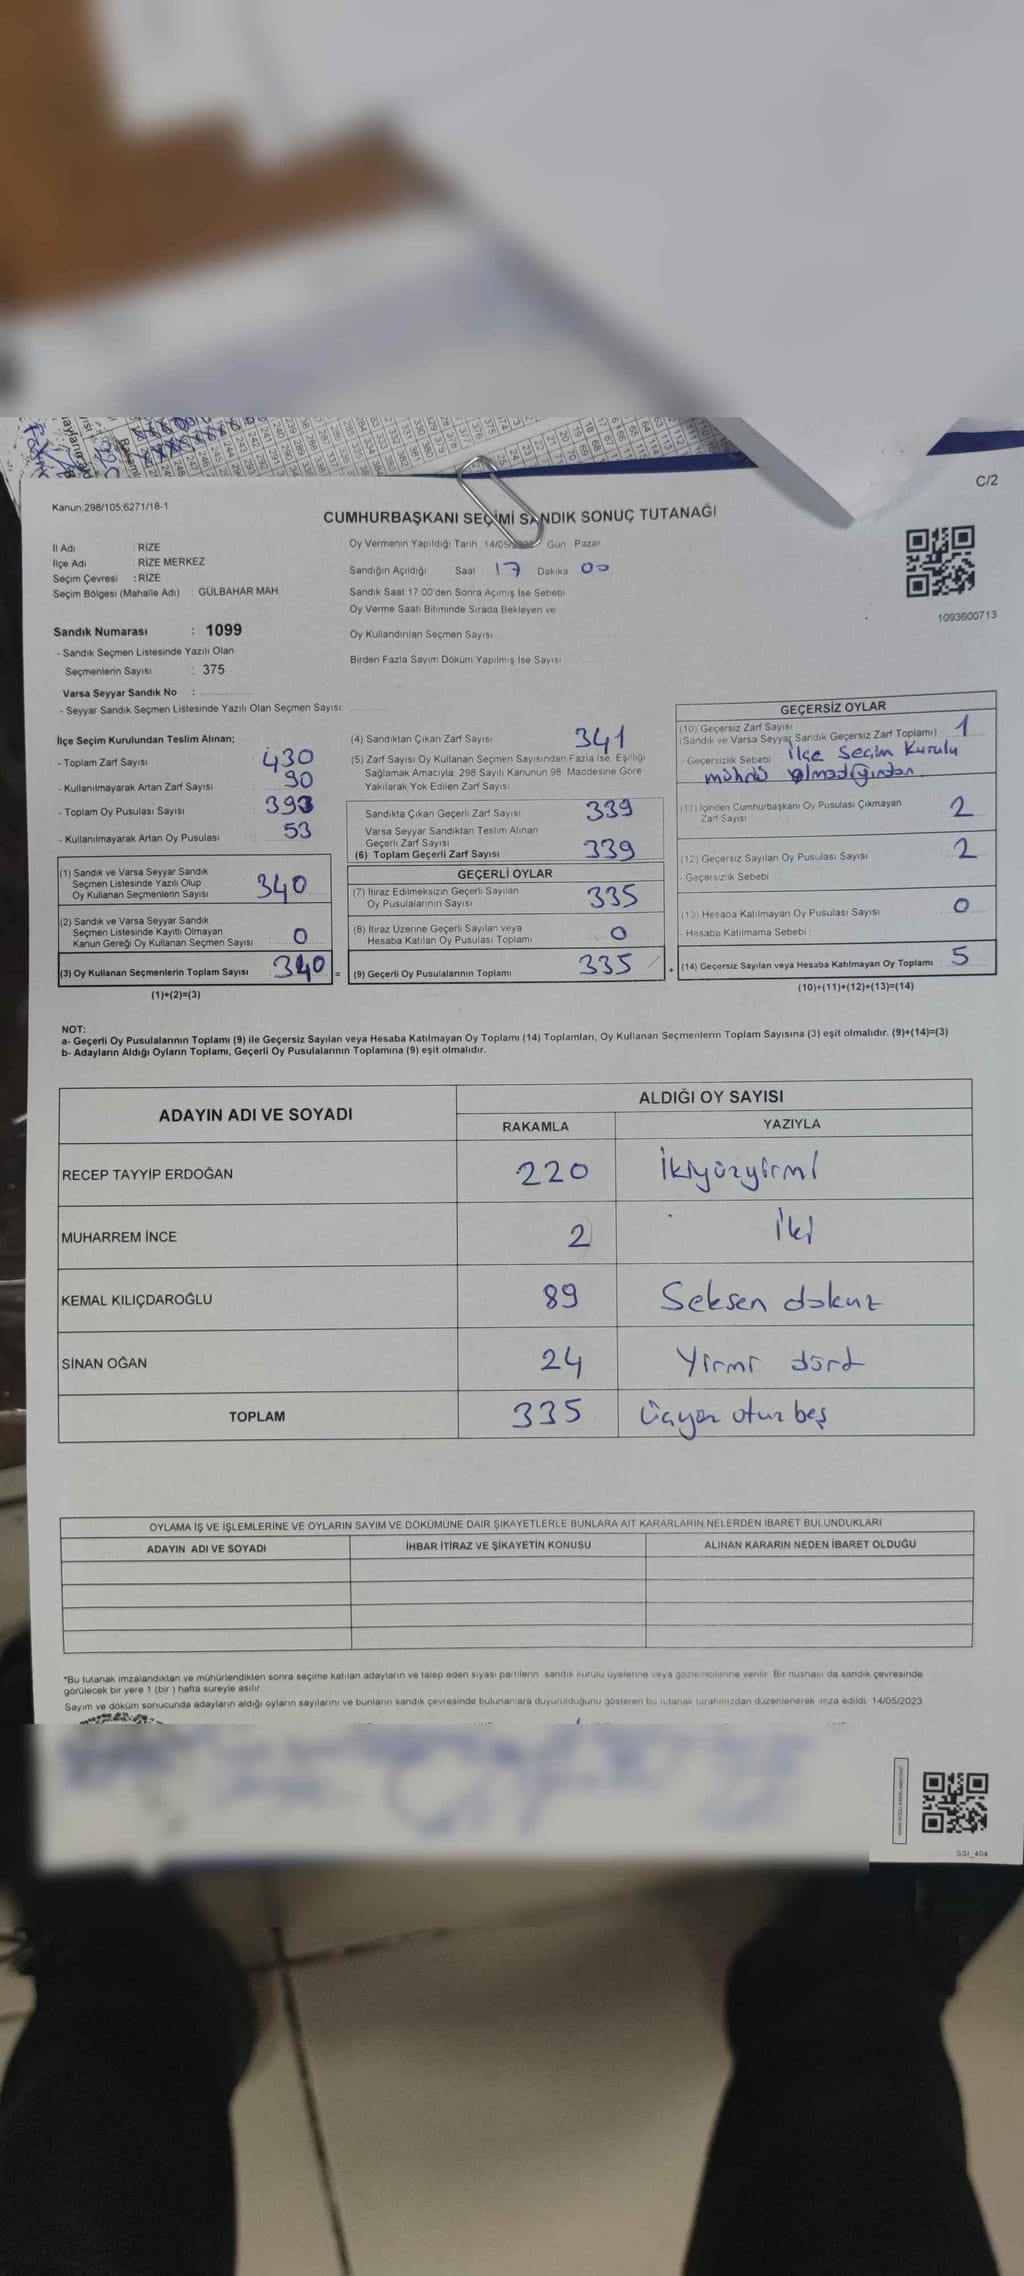 C/2
Kanun 298/105,6271/18-1
CUMHURBAŞKANI SEÇİMİ SANDIK SONUÇ TUTANAĞI
İl Adı : RİZE
İlçe Adı : RİZE MERKEZ
Seçim Çevresi : RİZE
Seçim Bölgesi (Mahalle Adı) : GÜLBAHAR MAH.
Sandık Numarası : 1099
- Sandık Seçmen Listesinde Yazılı Olan
Seçmenlerin Sayısı : 375
Varsa Seyyar Sandık No :
- Seyyar Sandık Seçmen Listesinde Yazılı Olan Seçmen Sayısı:
Oy Vermenin Yapıldığı Tarih 14/05/ Gün Pazar
Sandığın Açıldığı Saat : 17 Dakika 00
Sandık Saat 17:00'den Sonra Açımış İse Sebebi
Oy Verme Saati Bitiminde Sırada Bekleyen ve
Oy Kullandırılan Seçmen Sayısı
Birden Fazla Sayım Döküm Yapılmış İse Sayısı
1093600713
İlçe Seçim Kurulundan Teslim Alınan;
- Toplam Zarf Sayısı 430
- Kullanılmayarak Artan Zarf Sayısı 90
- Toplam Oy Pusulası Sayısı 393
- Kullanılmayarak Artan Oy Pusulası 53
(1) Sandık ve Varsa Seyyar Sandık
Seçmen Listesinde Yazılı Olup
Oy Kullanan Seçmenlerin Sayısı 340
(2) Sandık ve Varsa Seyyar Sandık
Seçmen Listesinde Kayıtlı Olmayan
Kanun Gereği Oy Kullanan Seçmen Sayısı 0
(3) Oy Kullanan Seçmenlerin Toplam Sayısı : 340 =
(1)+(2)=(3)
(4) Sandıktan Çıkan Zarf Sayısı 341
(5) Zarf Sayısı Oy Kullanan Seçmen Sayısından Fazla İse, Eşitliği
Sağlamak Amacıyla, 298 Sayılı Kanunun 98. Maddesine Göre
Yakılarak Yok Edilen Zarf Sayısı
Sandıkta Çıkan Geçerli Zarf Sayısı 339
Varsa Seyyar Sandıktan Teslim Alınan
Geçerli Zarf Sayısı
(6) Toplam Geçerli Zarf Sayısı 339
GEÇERLİ OYLAR
(7) İtiraz Edilmeksizin Geçerli Sayılan
Oy Pusulalarının Sayısı 335
(8) İtiraz Üzerine Geçerli Sayılan veya
Hesaba Katılan Oy Pusulası Toplamı 0
(9) Geçerli Oy Pusulalarının Toplamı 335 +
GEÇERSİZ OYLAR
(10) Geçersiz Zarf Sayısı
(Sandık ve Varsa Seyyar Sandık Geçersiz Zarf Toplamı) : 1
- Geçersizlik Sebebi : İlçe Seçim Kurulu
mührü olmadığından
(11) İçinden Cumhurbaşkanı Oy Pusulası Çıkmayan
Zarf Sayısı 2
(12) Geçersiz Sayılan Oy Pusulası Sayısı 2
- Geçersizlik Sebebi
(13) Hesaba Katılmayan Oy Pusulası Sayısı 0
- Hesaba Katılmama Sebebi :
(14) Geçersiz Sayılan veya Hesaba Katılmayan Oy Toplamı : 5
(10)+(11)+(12)+(13)=(14)
NOT:
a- Geçerli Oy Pusulalarının Toplamı (9) ile Geçersiz Sayılan veya Hesaba Katılmayan Oy Toplamı (14) Toplamları, Oy Kullanan Seçmenlerin Toplam Sayısına (3) eşit olmalıdır. (9)+(14)=(3)
b- Adayların Aldığı Oyların Toplamı, Geçerli Oy Pusulalarının Toplamına (9) eşit olmalıdır.
ADAYIN ADI VE SOYADI ALDIĞI OY SAYISI
RAKAMLA YAZIYLA
RECEP TAYYİP ERDOĞAN 220 İkiyüzyirmi
MUHARREM İNCE 2 İki
KEMAL KILIÇDAROĞLU 89 Seksen dokuz
SİNAN OĞAN 24 Yirmi dört
TOPLAM 335 Üçyüz otuz beş
OYLAMA İŞ VE İŞLEMLERİNE VE OYLARIN SAYIM VE DÖKÜMÜNE DAİR ŞİKAYETLERLE BUNLARA AİT KARARLARIN NELERDEN İBARET BULUNDUKLARI
ADAYIN ADI VE SOYADI İHBAR İTİRAZ VE ŞİKAYETİN KONUSU ALINAN KARARIN NEDEN İBARET OLDUĞU
*Bu tutanak imzalandıktan ve mühürlendikten sonra seçime katılan adayların ve talep eden siyasi partilerin sandık kurulu üyelerine veya gözlemcilerine verilir. Bir nushası da sandık çevresinde
görülecek bir yere 1 (bir) hafta süreyle asılır.
Sayım ve döküm sonucunda adayların aldığı oyların sayılarını ve bunların sandık çevresinde bulunanlara duyurulduğunu gösteren bu tutanak tarafımızdan düzenlenerek imza edildi. 14/05/2023
SSI_404